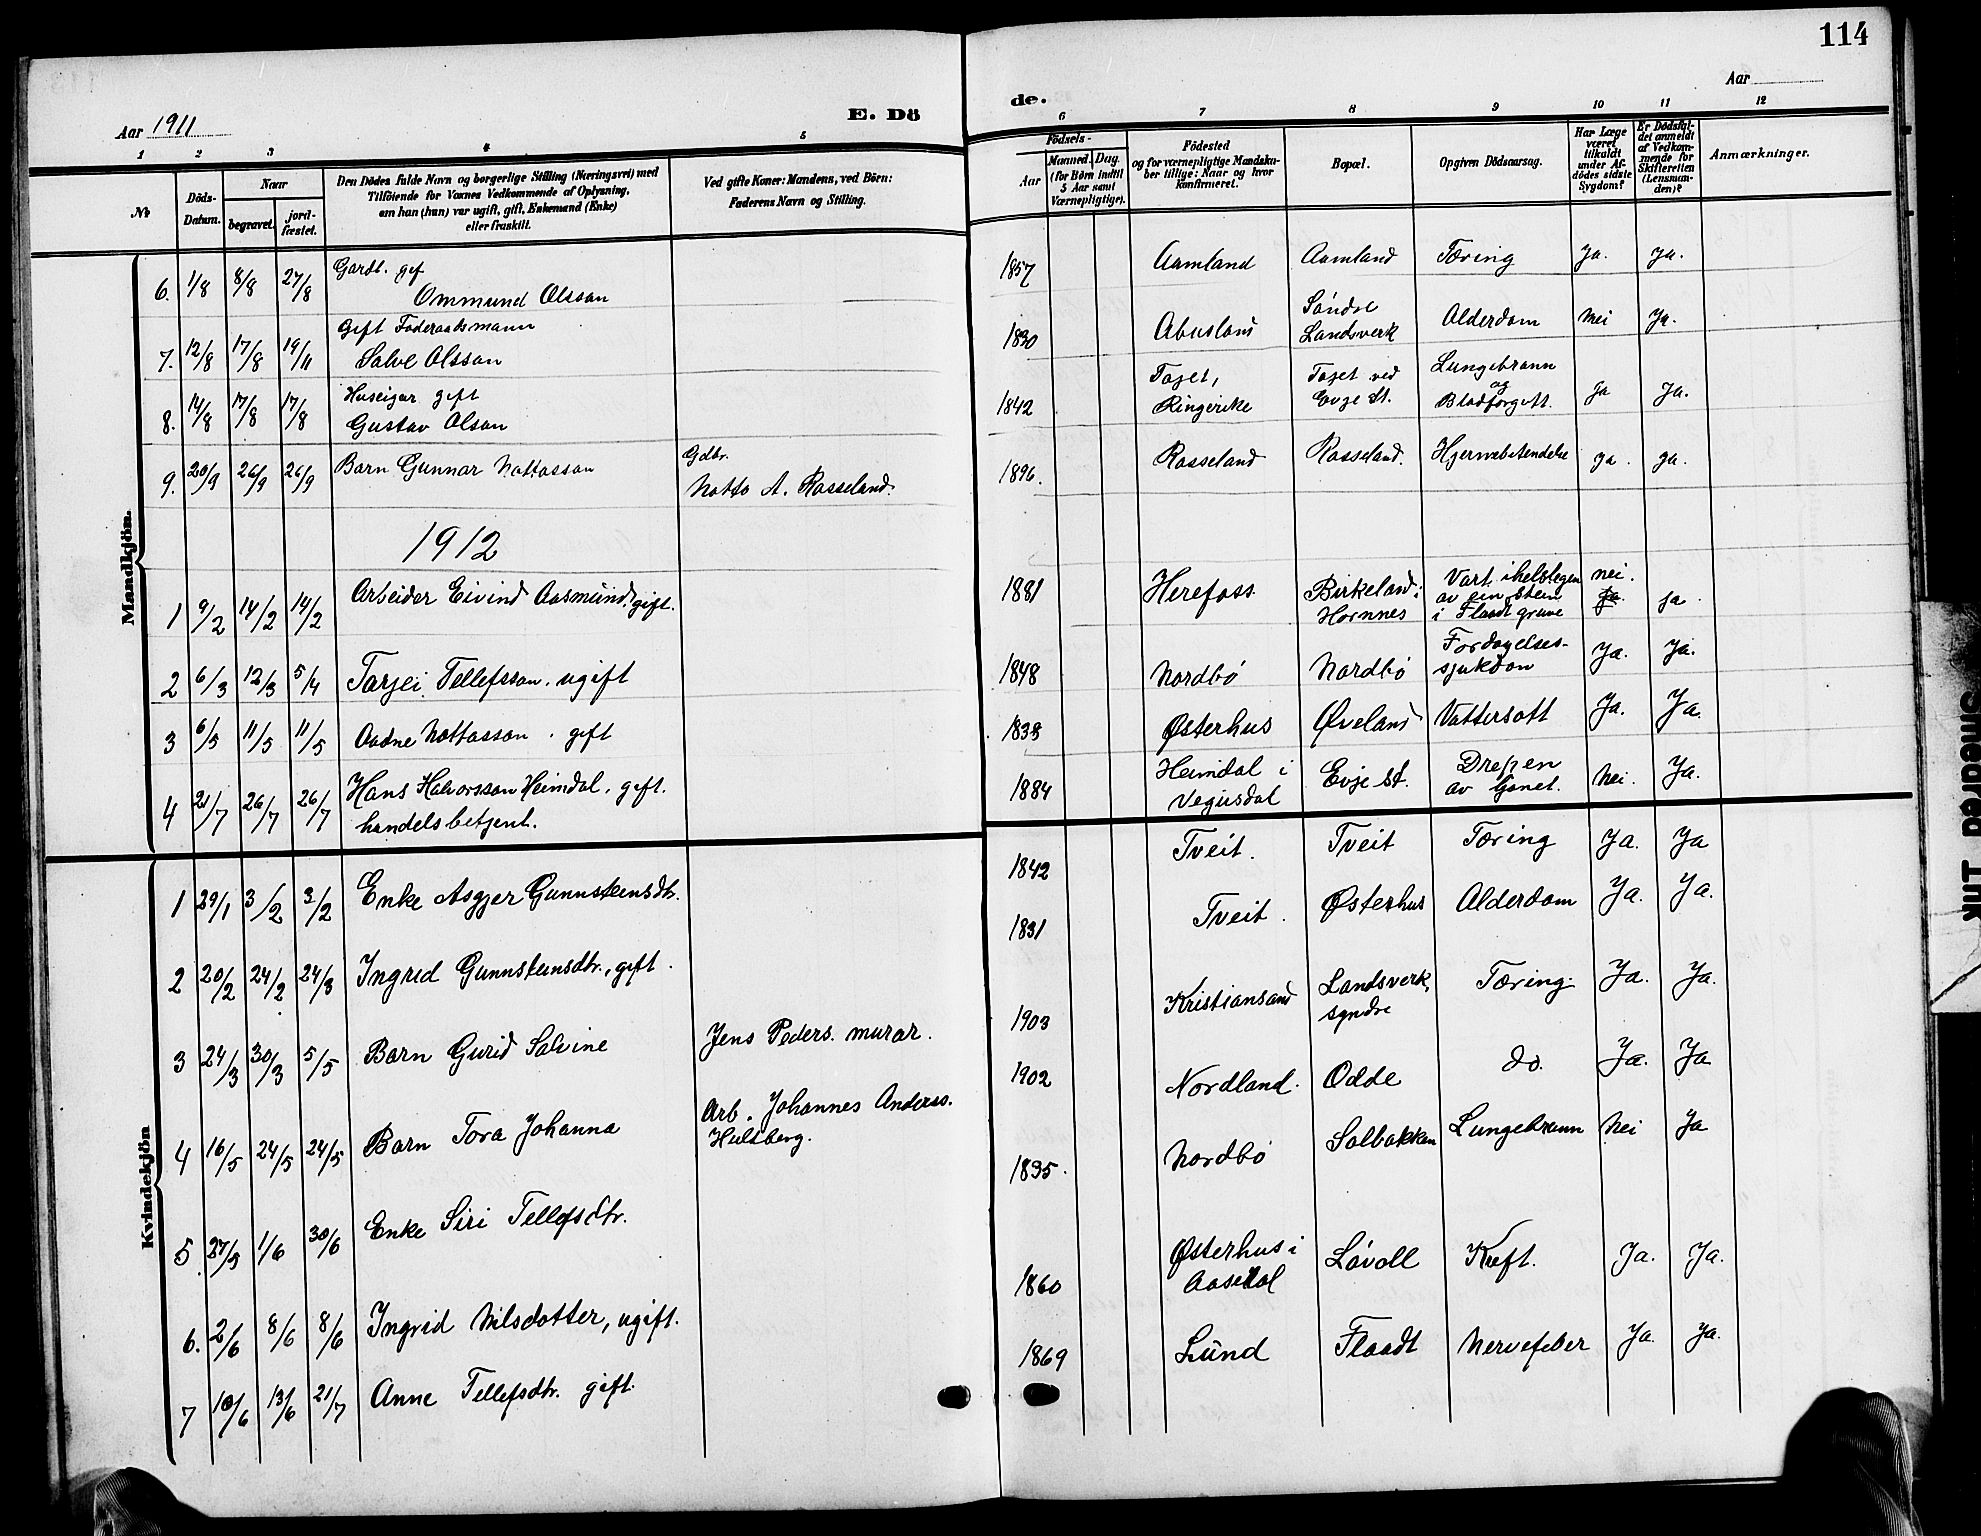 114
Aar 1911
E. Dö
de.
Aar
1 2 3 4 5
6 7 8 9 10 11 12
№
Döds-
Datum.
Naar
begravet.
jord-
fæstet.
Den Dödes fulde Navn og borgerlige Stilling (Næringsvei) med
Tilföiende for Voxnes Vedkommende af Oplysning,
om han (hun) var ugift, gift, Enkemand (Enke)
eller fraskilt.
Ved gifte Koner: Mandens, ved Börn:
Faderens Navn og Stilling.
Födsels-
Aar
Maaned. Dag.
(for Börn indtil
5 Aar samt
Værnepligtige).
Födested
og for værnepligtige Mandska-
ber tillige: Naar og hvor
konfirmeret.
Bopæl.
Opgiven Dödsaarsag.
Har Læge
været
tilkaldt
under Af-
dödes sidste
Sygdom?
Er Dödsfal-
det anmeldt
af Vedkom-
mende for
Skifteretten
(Lensman-
den)?
Anmærkninger.
Mandkjön.
6. 1/8 8/8 27/8 Gardb. gif
Ommund Olsson 1857 Aamland Aamland Tæring Ja. Ja.
7. 12/8 17/8 19/11 Gift Foderaadsmann
Salve Olsson 1830 Abusland Söndre
Landsverk Alderdom Nei Ja.
8. 14/8 17/8 17/8 Huseigar gift
Gustav Olson 1842 Toset,
Ringerike Toset ved
Evje st. Lungebrann
og
Blodforgift. Ja Ja.
9. 20/9 26/9 26/9 Barn Gunnar Nottosson Gdbr.
Notto A. Rosseland. 1896. Rosseland Rosseland. Hjernebetendelse ja. ja.
1912
1 9/2 14/2 14/2 Arbeider Eivind Aasmund. gift. 1881 Herefoss Birkeland i
Hornnes Vart ihelslegen
av ein stein
i Flaadt gruve nei.
Ja. ja.
2 6/3 12/3 5/4 Tarjei Tellefsson. ugift 1848 Nordbö Nordbö Fordøyelses-
sjukdom Ja. Ja.
3 6/5 11/5 11/5 Aadne Nottosson. gift 1838 Østerhus Øveland Vattersott Ja. Ja.
4 21/7 26/7 26/7 Hans Halvorsson Heimdal, gift.
handelsbetjent. 1884 Heimdal i
Vegusdal Evje st. Drepen
av tonet. Nei. Ja.
Kvindekjön
1 29/1 3/2 3/2 Enke Asgjer Gunnsteinsdtr. 1842 Tveit. Tveit Tæring Ja. Ja
2 20/2 24/2 24/3 Ingrid Gunnsteinsdtr., gift. 1831 Tveit. Østerhus Alderdom Ja. Ja.
3 24/3 30/3 5/5 Barn Gurid Salvine Jens Peders. murar. 1903 Kristiansand Landsverk,
syndre Tæring Ja. Ja.
4 16/5 24/5 24/5 Barn Tora Johanna Arb. Johannes Anderss.
Hultberg. 1902 Nordland. Odde do. Ja. Ja
5. 27/5 1/6 30/6 Enke Siri Tellefsdtr. 1835. Nordbö Solbakken Lungebrann Nei Ja
6. 2/6 8/6 8/6 Ingrid Nilsdotter, ugift. 1860 Østerhus i
Aaseral Lövoll Kreft. Ja. Ja.
7 10/6 13/6 21/7 Anne Tellefsdtr. gift. 1869 Lund Flaadt Nervefeber Ja. Ja.